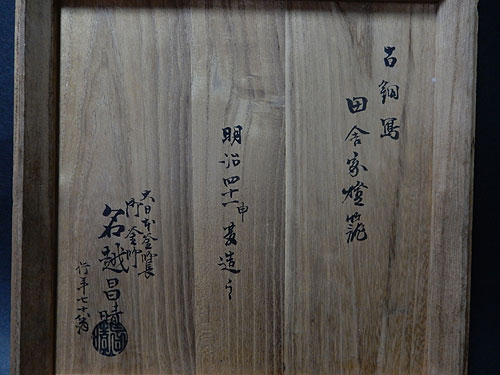 古銅寫
田舎家燈籠
明治四十一申夏造之
大日本釜師長
御釜師
名越昌晴
行年七十六翁